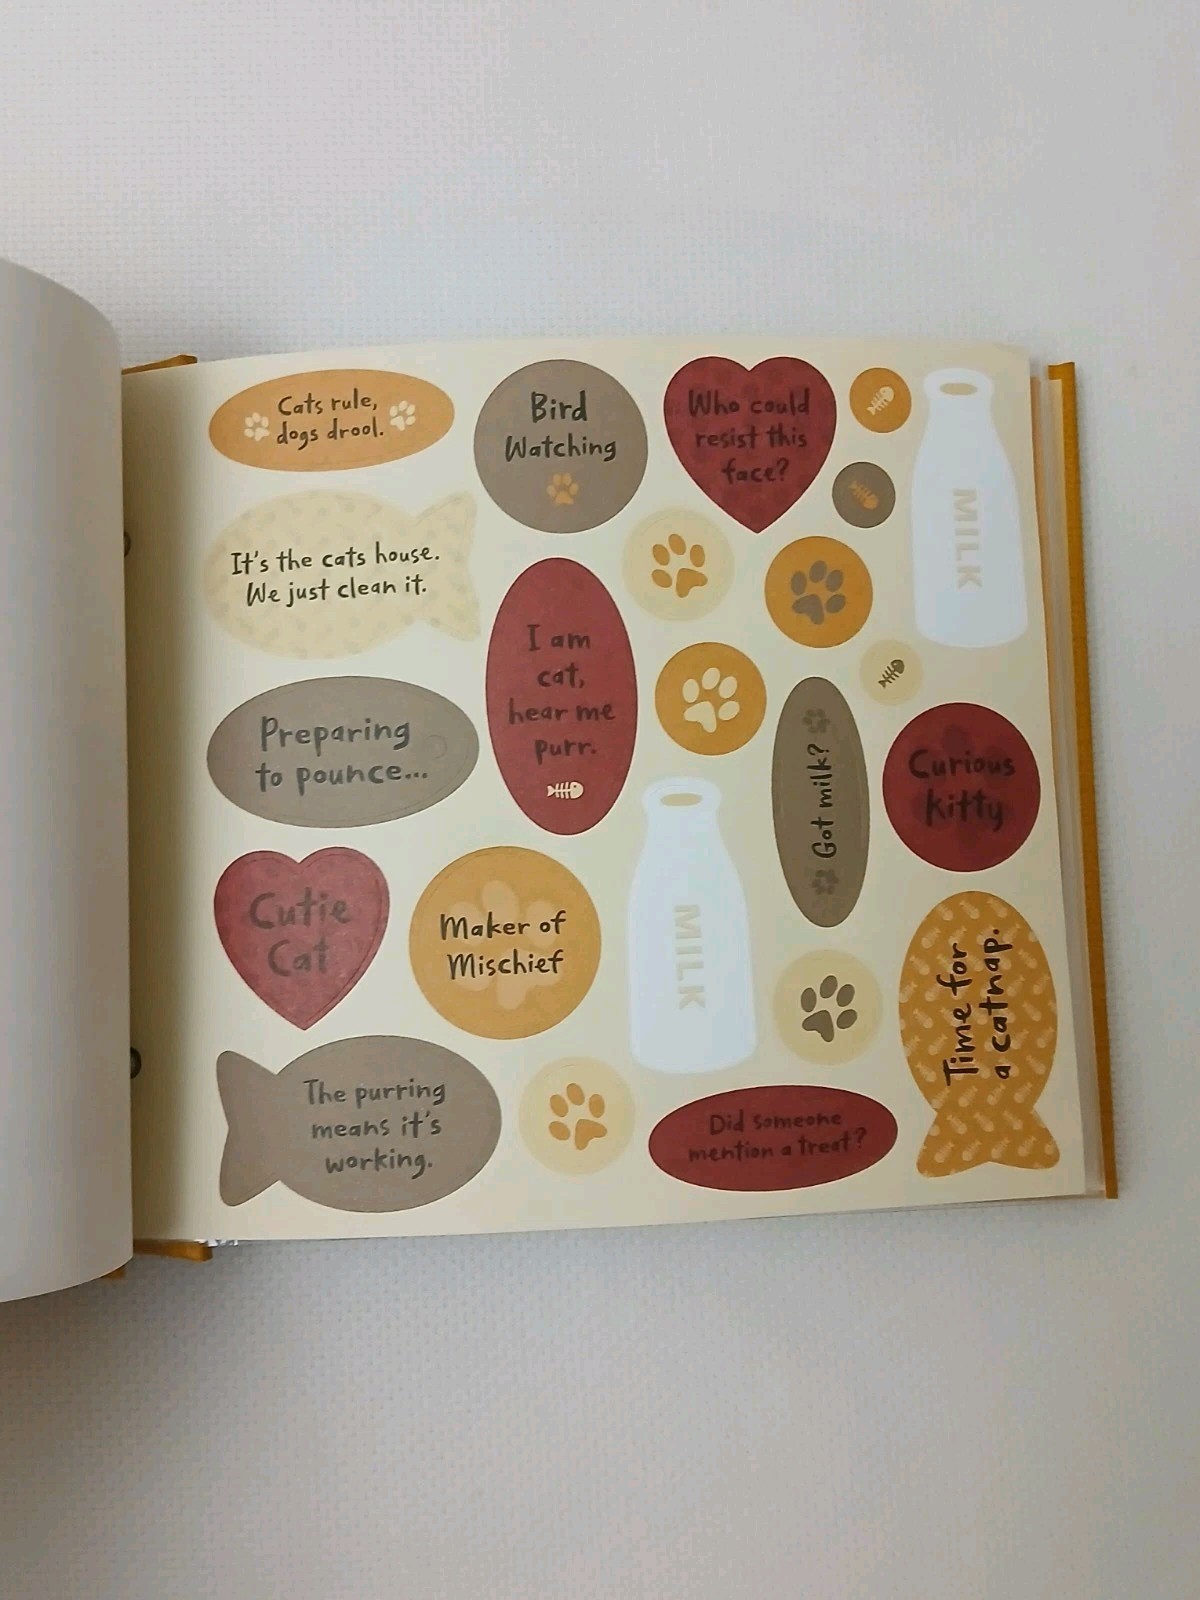 Cats rule,
dogs drool.
Bird
Watching
Who could
resist this
face?
MILK
It's the cats house.
We just clean it.
I am
cat,
hear me
purr.
Preparing
to pounce...
Got milk?
Curious
kitty
Cutie
Cat
Maker of
Mischief
MILK
Time for
a catnap.
The purring
means it's
working.
Did someone
mention a treat?